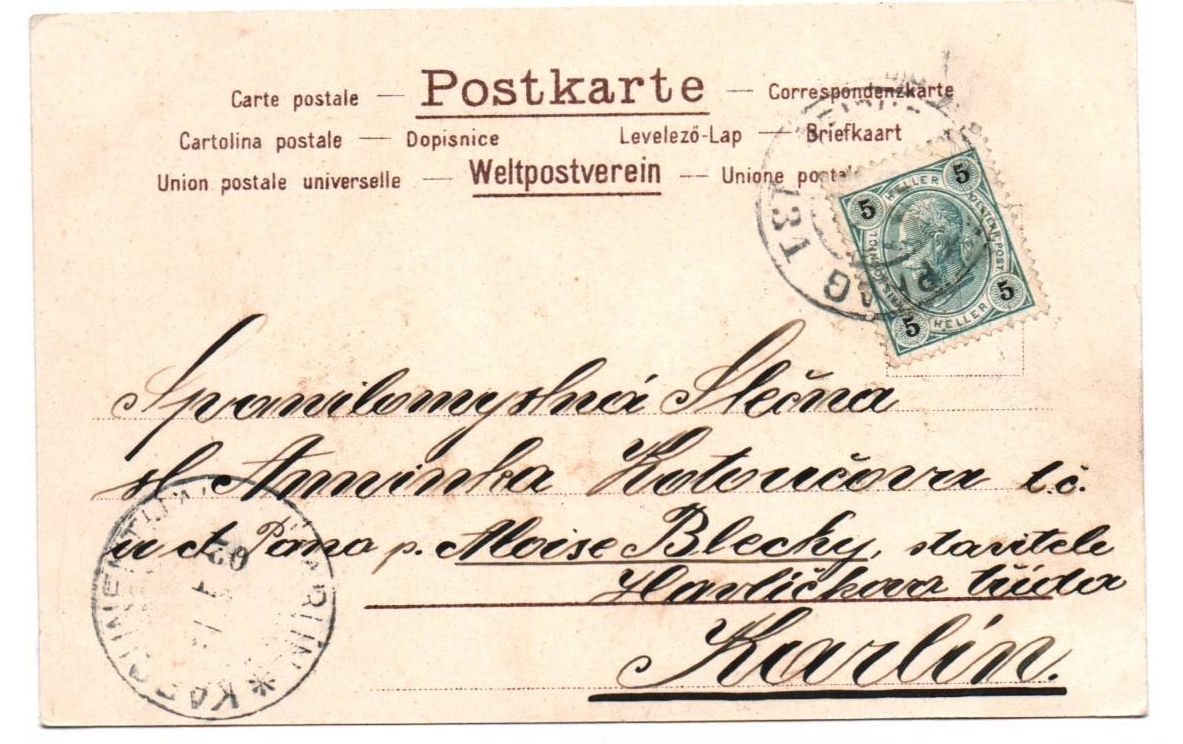 Postkarte
Carte postale — Correspondenzkarte
Cartolina postale — Dopisnice Levelező-Lap — Briefkaart
Union postale universelle — Weltpostverein — Unione postale
5 HELLER 5
5 HELLER 5
PRAG 13
Spanilomyslná Slečna
sl. Aninka Kotoučova t.č.
u ct. Pána p. Moise Blechy, stavitele
Havličkova třída
Karlín.
KAROLINENTHAL KARLIN *
02